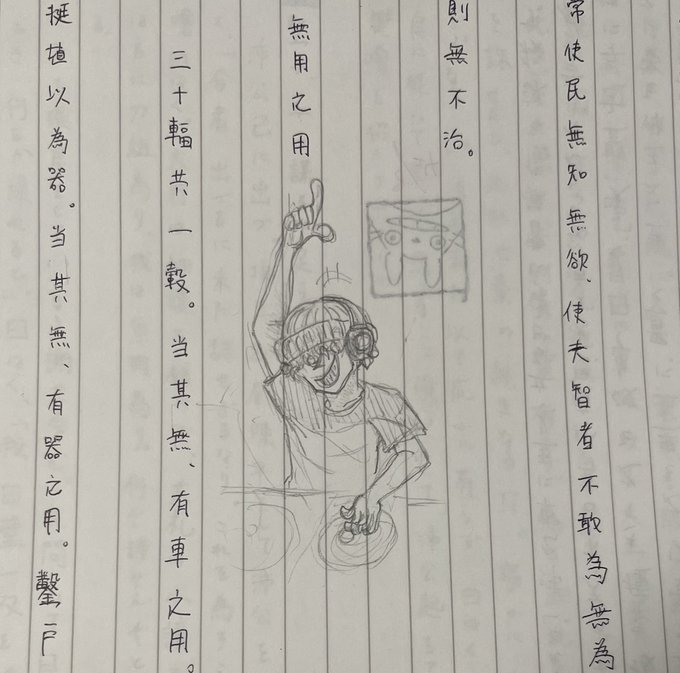 常使民無知無欲、使夫智者不敢為無為
則無不治。
無用之用
三十輻共一轂。当其無、有車之用。
挻埴以為器。当其無、有器之用。鑿戸